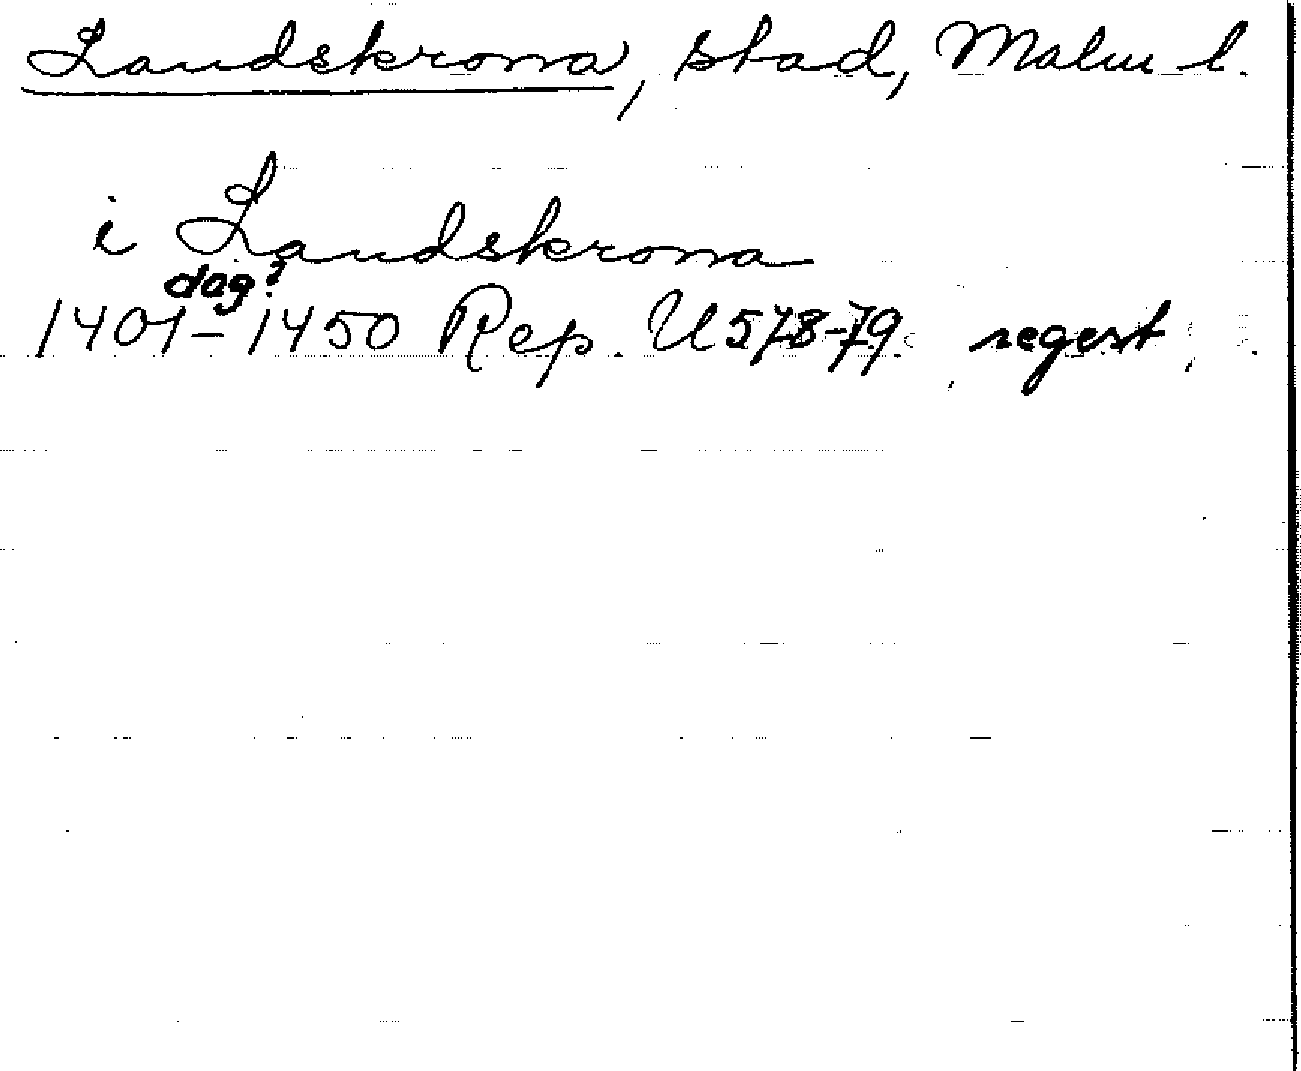 Landskrona, stad, Malm l.
i Landskrona
dag?
1401-1450 Rep. U 578-79 regest